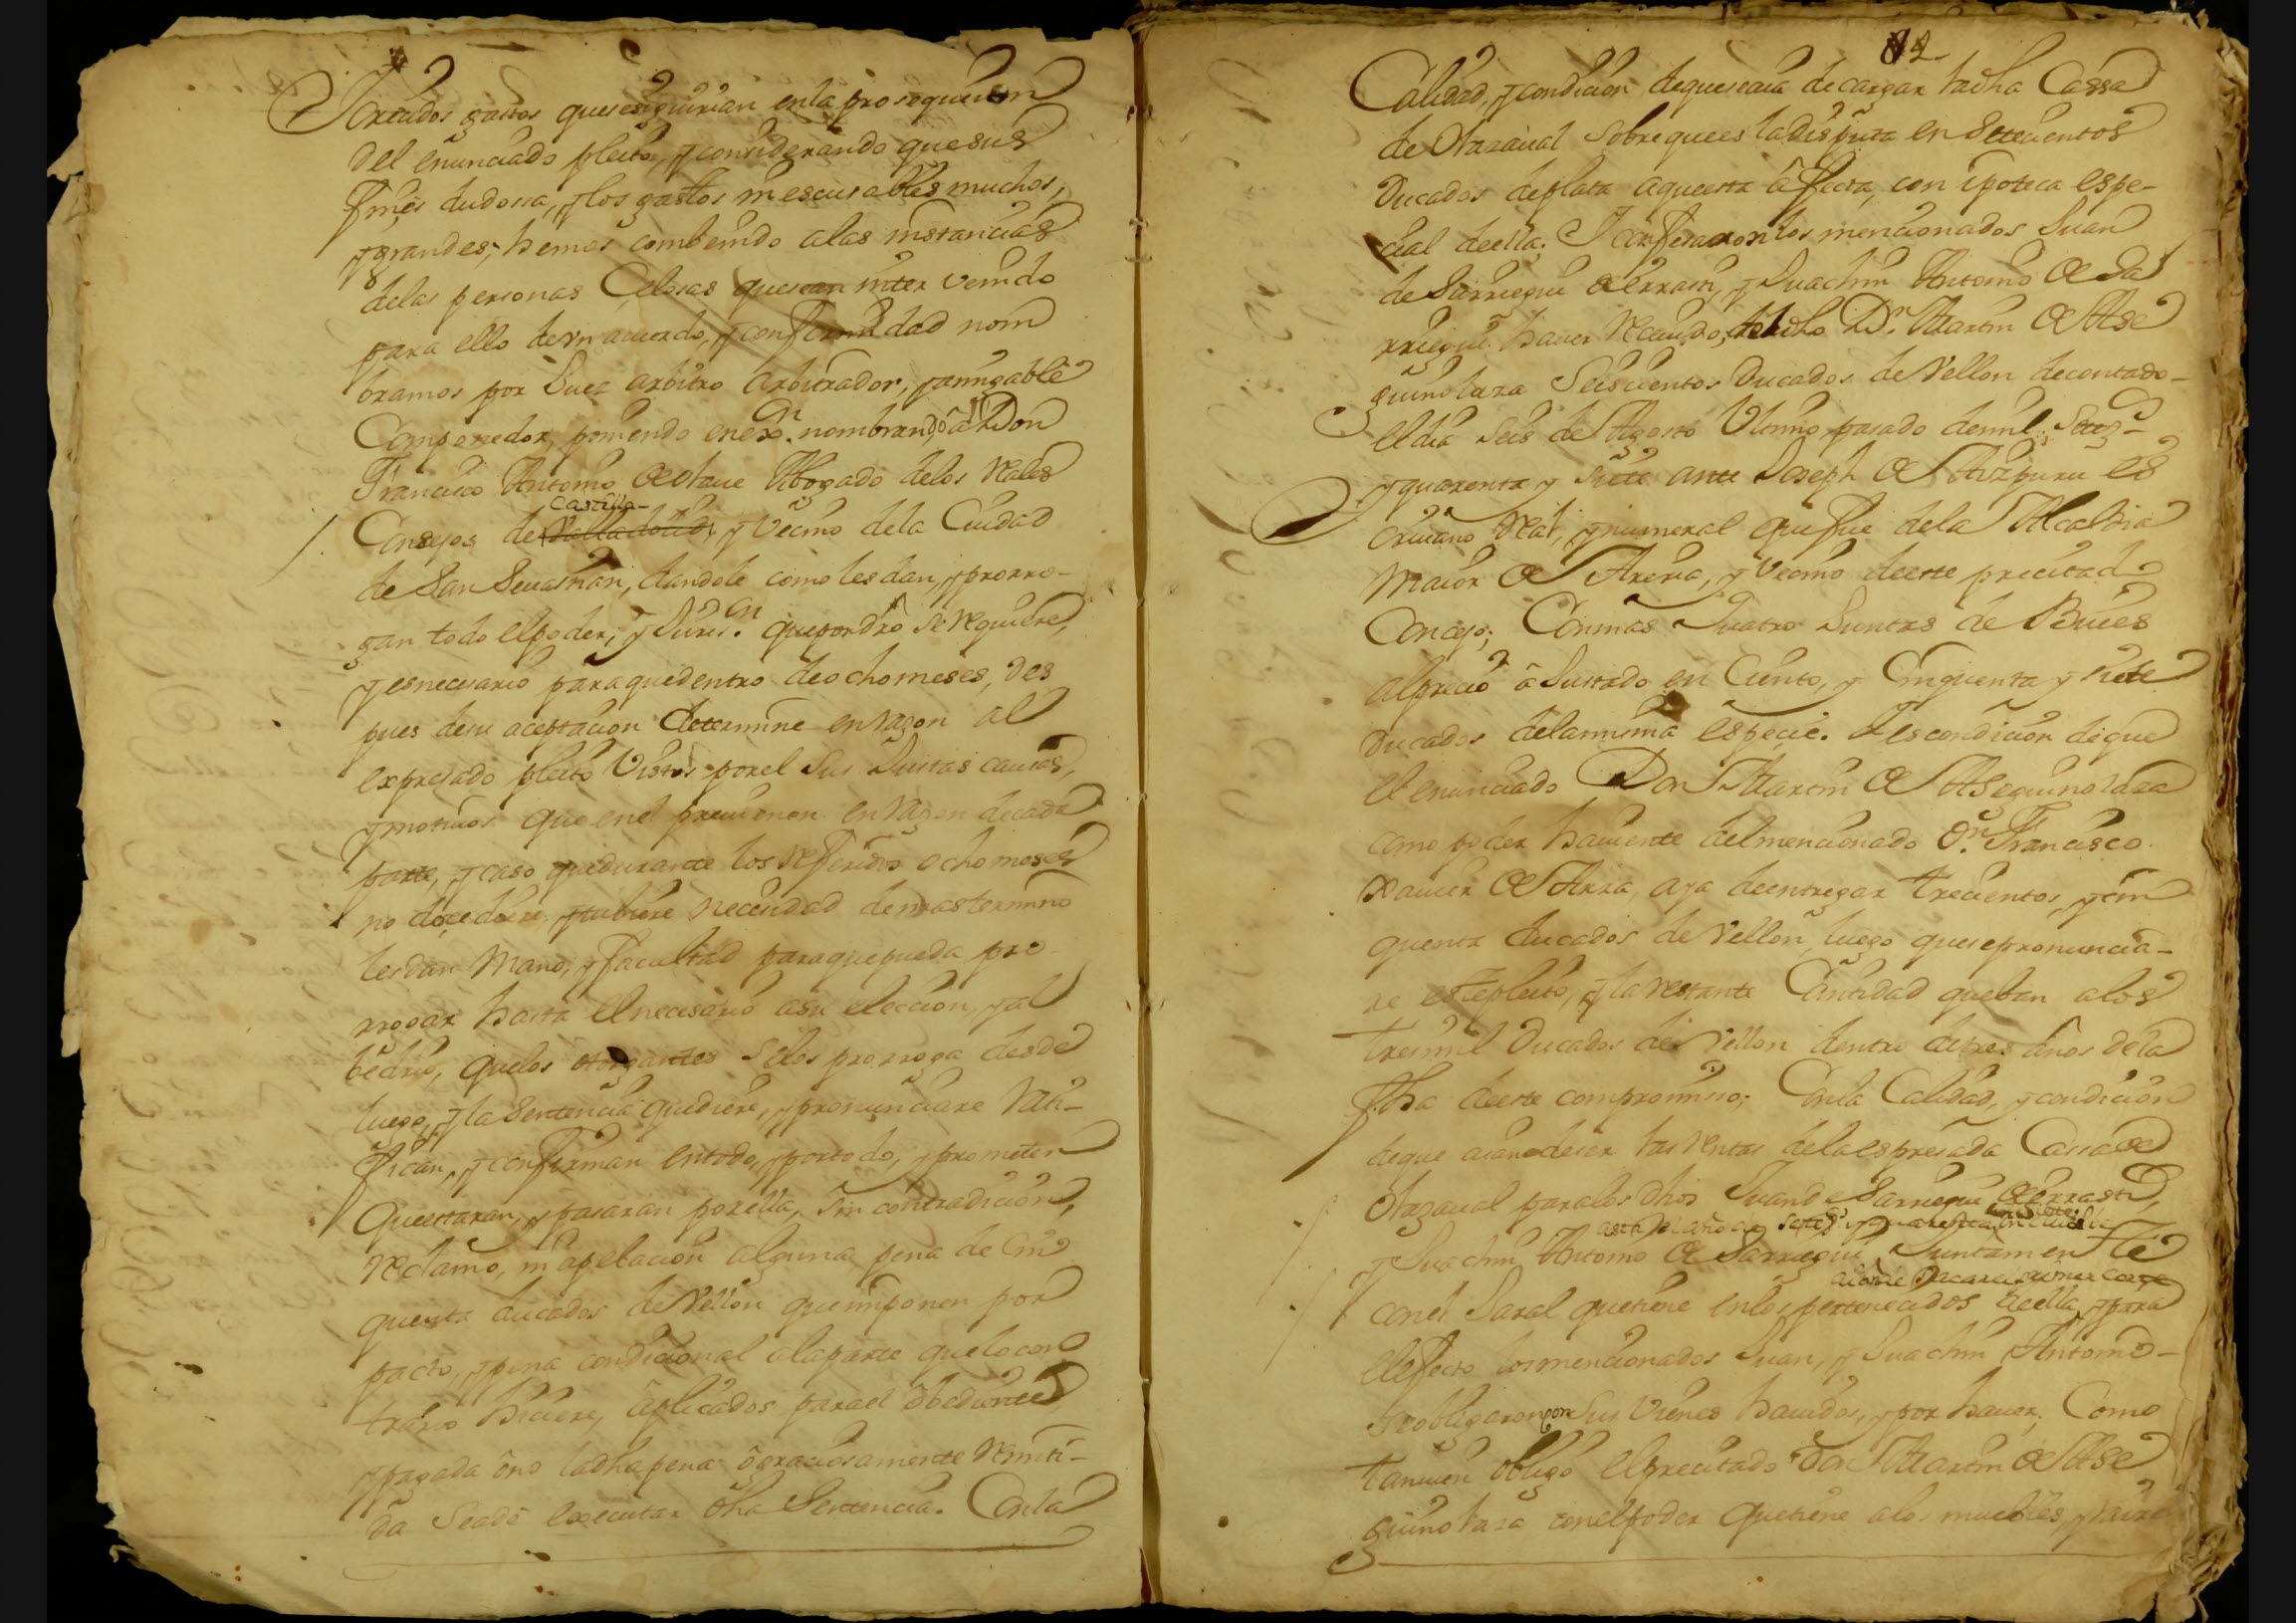 crecidos gastos queseseguirian enla prosequcion
del enunciado pleito, y considerando quesus
fines dudossa, y los gastos inescusables muchos,
y grandes; hemos combenido alas instancias
delas personas Celosas quesean inter venido
para ello deun acuerdo, y conformidad nom
bramos por Juez arbitro arbitrador, y amigable
Componedor, poniendo enexon. nombrando a Don
Francisco Antonio de olaue Abogado delos Rales
Castilla-
Consejos de Valladolid, y Vecino dela Ciudad
de San Seuastian, dandole como lesdan, y prorro-
gan todo elpoder, y Juris.on quepordro se requiere,
y esnecesario paraquedentro deochomeses, des
pues desu aceptacion determine enrazon al
expresado pleito Vistos porel sus Justas causas,
y motiuos que enel preuienen enrazon decada
parte, y caso quedurante los referidos ochomeses
no lo decidiere y tubiere necesidad demastermino
lesdan Mano, y facultad paraquepueda pro
rrogar hasta elnecesario asu eleccion, y al
bedrio, quelos otorgantes selos prorroga desde
luego, y la Sentencia quediere, y pronunciare rati-
fican, y confirman entodo, y portodo, y prometen
Queestaran, y pasaran porella, sin contradicion,
reclamo, ni apelacion alguna pena de Cin
quenta ducados deVellon queimponen por
pacto, y pena condicional alaparte quelocon
trario hiciere, aplicados parael obediente
y pagada ono ladhapena ograciosamente remiti-
da seade executar dha Sentencia. Conla
82
Calidad, y condicion dequeseaia decargar ladha Cassa
de Olazaual sobrequees ladisputa en Setecientos
Ducados deplata aqueesta afecta, con ipoteca espe-
cial deella; I confesaronlos mencionados Juan
de Sarriegui de errasti, y Juachin Antonio de Sa
rriegui hauer Reciuido, dedho Dn. Martin de Ase
guinolaza Seiscientos Ducados de Vellon decontado-
eldia seis de Agosto Ultimo pasado demil, setez-
y quarenta y siete ante Joseph de Aizpuru es
criuano Real, y numeral quefue dela Alcaldia
Maior de Areria, y Vecino deeste precitado
Concejo; Conmas Quatro Juntas de Bueies
alprecio aJustado en Ciento, y Cinquenta y siete
Ducados delamisma especie. I escondicion deque
el enunciado Don Martin de Aseguinolaza
como poder hauiente delmencionado Dn. Francisco
Xauier de Arza, aya deentregar trecientos, y cin
quenta ducados de Vellon, luego quesepronuncia-
re estepleito, y larestante Cantidad queban alos
tresmil Ducados de Vellon dentro detres años dela
fha deeste compromiso; Conla Calidad, y condicion
deque aiandeser lasrentas delaespresada Cassa de
Olazaual paralos dhos Juande Sarriegui de errasti,
asta elaño de sette.s y quarenta inclusiue
y Juachin Antonio de Sarriegui, Juntamente
conel Jaral quetiene enlospertenecidos deella, y para
elefecto losmencionados Juan, y Juachin Antonio-
seobligaroncon sus Vienes hauidos, y por hauer; Como
tambien obligo elprecitado Don Martin de Ase
guinolaza conelpoder quetiene alos muebles, y raize